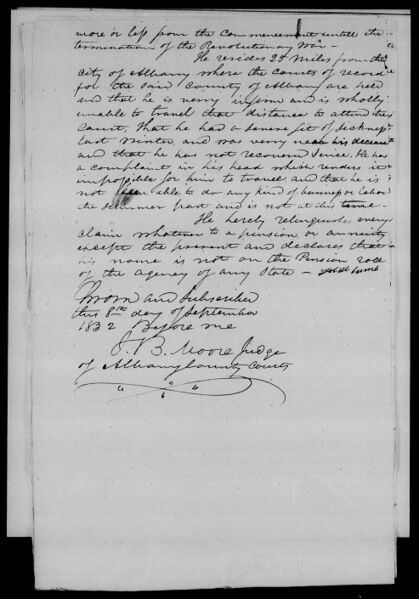 more or less from the Commencement untill the
termination of the Revolutionary War –
He resides 25 miles from the
city of Albany where the courts of record
for the said County of Albany are held
and that he is verry infirm and is wholly
unable to travel that distance to attend the
Court, That he had a severe fit of sickness
last winter, and was verry near his decease
and that he has not recovered since. He has
a complaint in his head which renders it
impossible for him to travel and that he is
not able to do any kind of business or labor
the summer past and is not at this time.
He hereby relinquishes every
claim whatever to a pension or annuity
except the present and declares that
his name is not on the Pension roll
of the agency of any State –
Sworn and Subscribed
this 8th day of September
1832 Before me
J. B. Moore Judge
of Albany County Courts